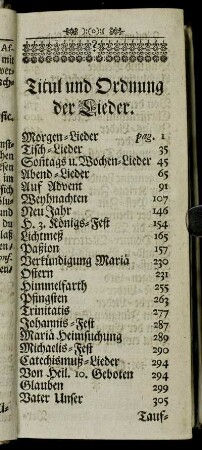 Titul und Ordnung
der Lieder.
Morgen-Lieder pag. 1
Tisch-Lieder 35
Sontags u. Wochen-Lieder 45
Abend-Lieder 65
Auf Advent 91
Weyhnachten 107
Neu Jahr 146
H. 3. Königs-Fest 154
Lichtmeß 165
Paßion 157
Verkündigung Mariä 230
Ostern 231
Himmelfarth 255
Pfingsten 263
Trinitatis 277
Johannis-Fest 287
Mariä Heimsuchung 289
Michaelis-Fest 290
Catechismuß-Lieder 294
Von Heil. 10. Geboten 294
Glauben 299
Vater Unser 305
Tauf-